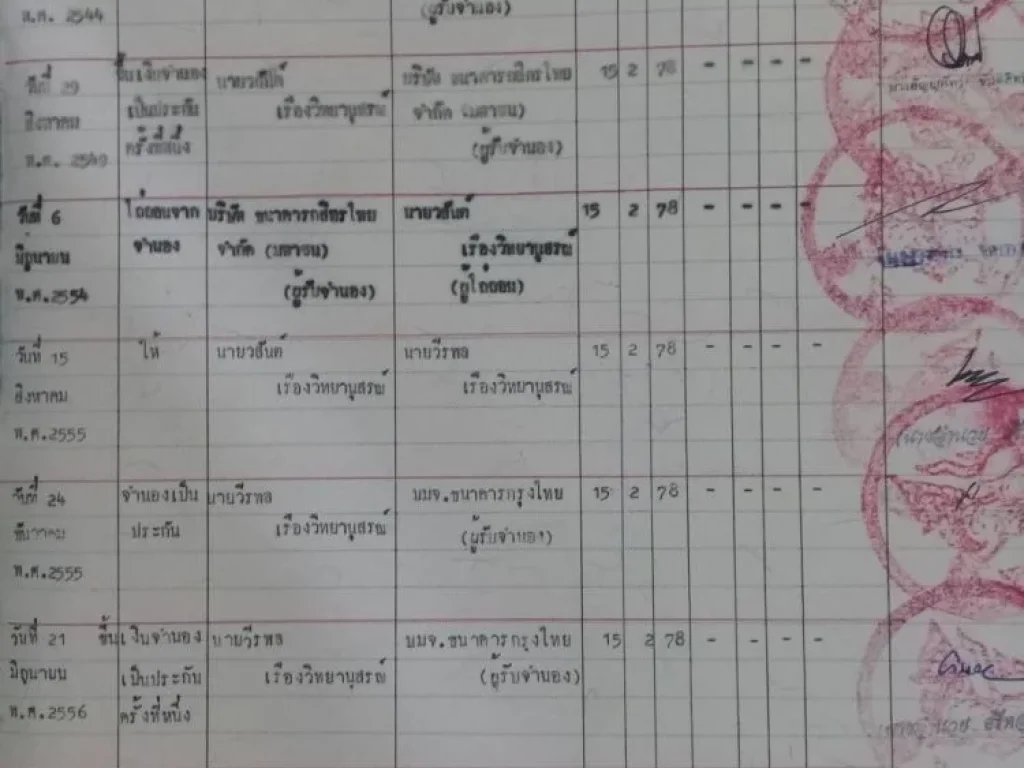 พ.ศ. 2544
(ผู้รับจำนอง)
วันที่ 29 ขึ้นเงินจำนอง นายวสันต์ บริษัท ธนาคารกสิกรไทย 15 2 78 - - - -
สิงหาคม เป็นประกัน เรืองวิทยานุสรณ์ จำกัด (มหาชน)
พ.ศ. 2549 ครั้งที่หนึ่ง (ผู้รับจำนอง)
วันที่ 6 ไถ่ถอนจาก บริษัท ธนาคารกสิกรไทย นายวสันต์ 15 2 78 - - - -
มิถุนายน จำนอง จำกัด (มหาชน) เรืองวิทยานุสรณ์
พ.ศ.2554 (ผู้รับจำนอง) (ผู้ไถ่ถอน)
วันที่ 15 ให้ นายวสันต์ นายวีรพล 15 2 78 - - - -
สิงหาคม เรืองวิทยานุสรณ์ เรืองวิทยานุสรณ์
พ.ศ.2555
วันที่ 24 จำนองเป็น นายวีรพล บมจ.ธนาคารกรุงไทย 15 2 78 - - - -
ธันวาคม ประกัน เรืองวิทยานุสรณ์ (ผู้รับจำนอง)
พ.ศ.2555
วันที่ 21 ขึ้นเงินจำนอง นายวีรพล บมจ.ธนาคารกรุงไทย 15 2 78 - - - -
มิถุนายน เป็นประกัน เรืองวิทยานุสรณ์ (ผู้รับจำนอง)
พ.ศ.2556 ครั้งที่หนึ่ง